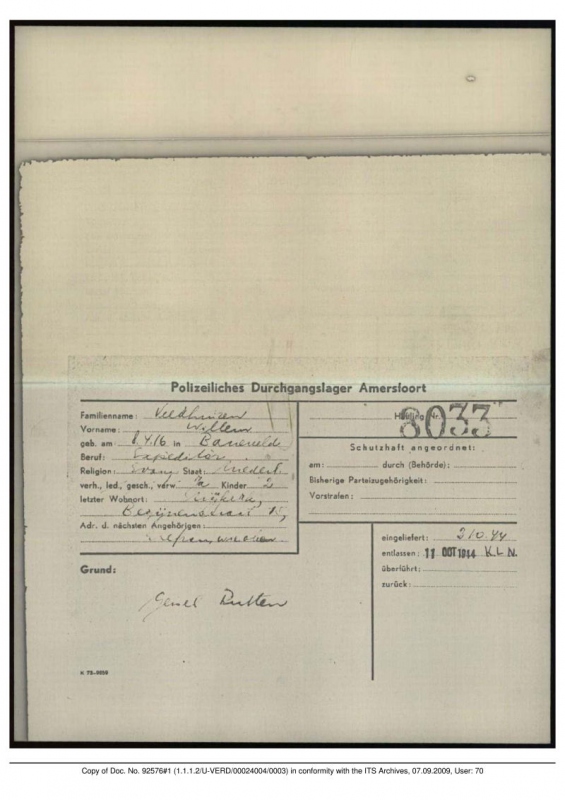 Polizeiliches Durchgangslager Amersfoort
Familienname: Veldhuizen
Vorname: Willem
geb. am 8.4.16 in Barneveld
Beruf: Expeditör
Religion: Evang. Staat: Niederl.
verh., led., gesch., verw. Ja Kinder 2
letzter Wohnort: Nijkerk,
Adr. d. nächsten Angehörigen:
Häftling Nr. 8033
Schutzhaft angeordnet:
am: durch (Behörde):
Bisherige Parteizugehörigkeit:
Vorstrafen:
eingeliefert: 2.10.44
entlassen: 11 OCT 1944 K.L.N.
überführt:
zurück:
Grund:
K 73-8658
Copy of Doc. No. 92576#1 (1.1.1.2/U-VERD/00024004/0003) in conformity with the ITS Archives, 07.09.2009, User: 70